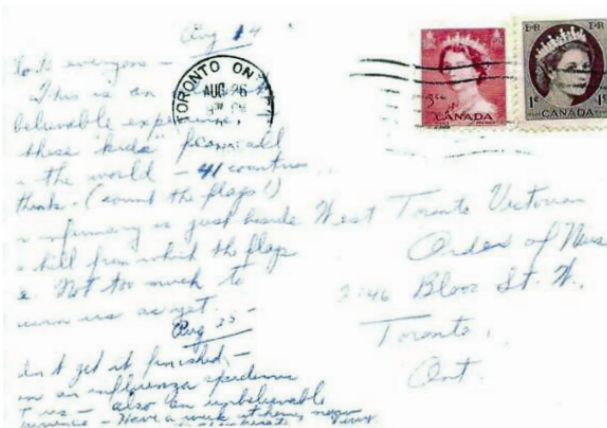 Aug 14
to everyone -
This is an
believable experience
these "kids" from all
the world - 41 countries
thank. (count the flags!)
infirmary is just beside
hill from which the flags
Not too much to
us as yet.
Aug 25 -
get it finished, -
an influenza epidemic
us - also an unbelievable
- Have a week at home, now
TORONTO ONTARIO
AUG 26
PM
3c
CANADA
E·R I·R
1c 1c
CANADA
West Toronto Victorian
Order of
Bloor St. W.,
Toronto,
Ont.